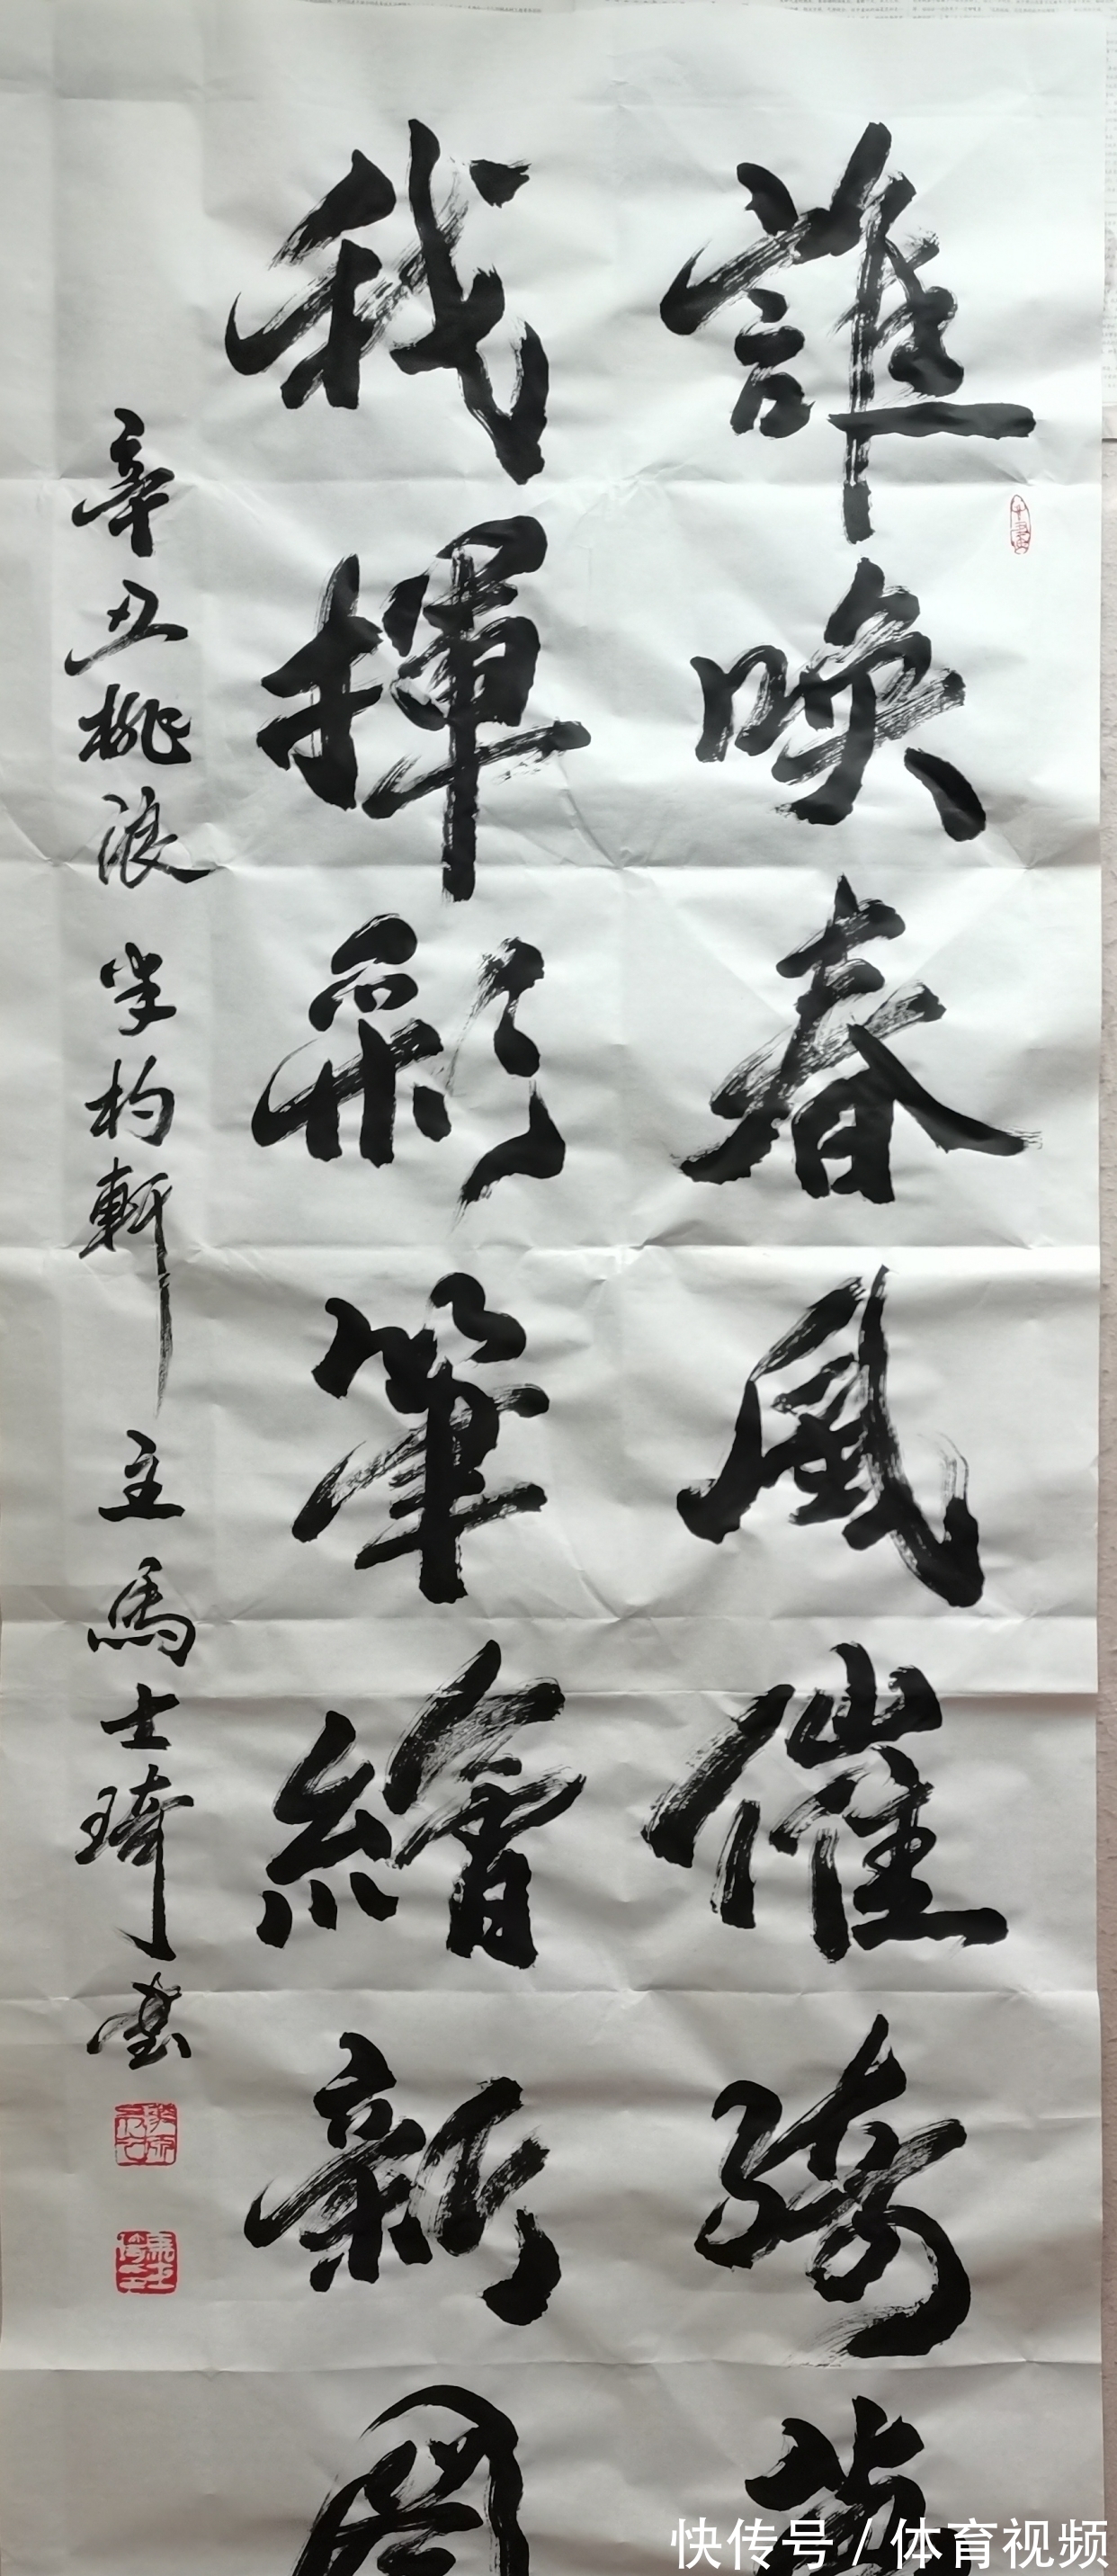 誰喚春風催綺
我揮彩筆繪新圖
辛丑桃浪 半杓軒主馬士琦書
快传号 / 体育视频